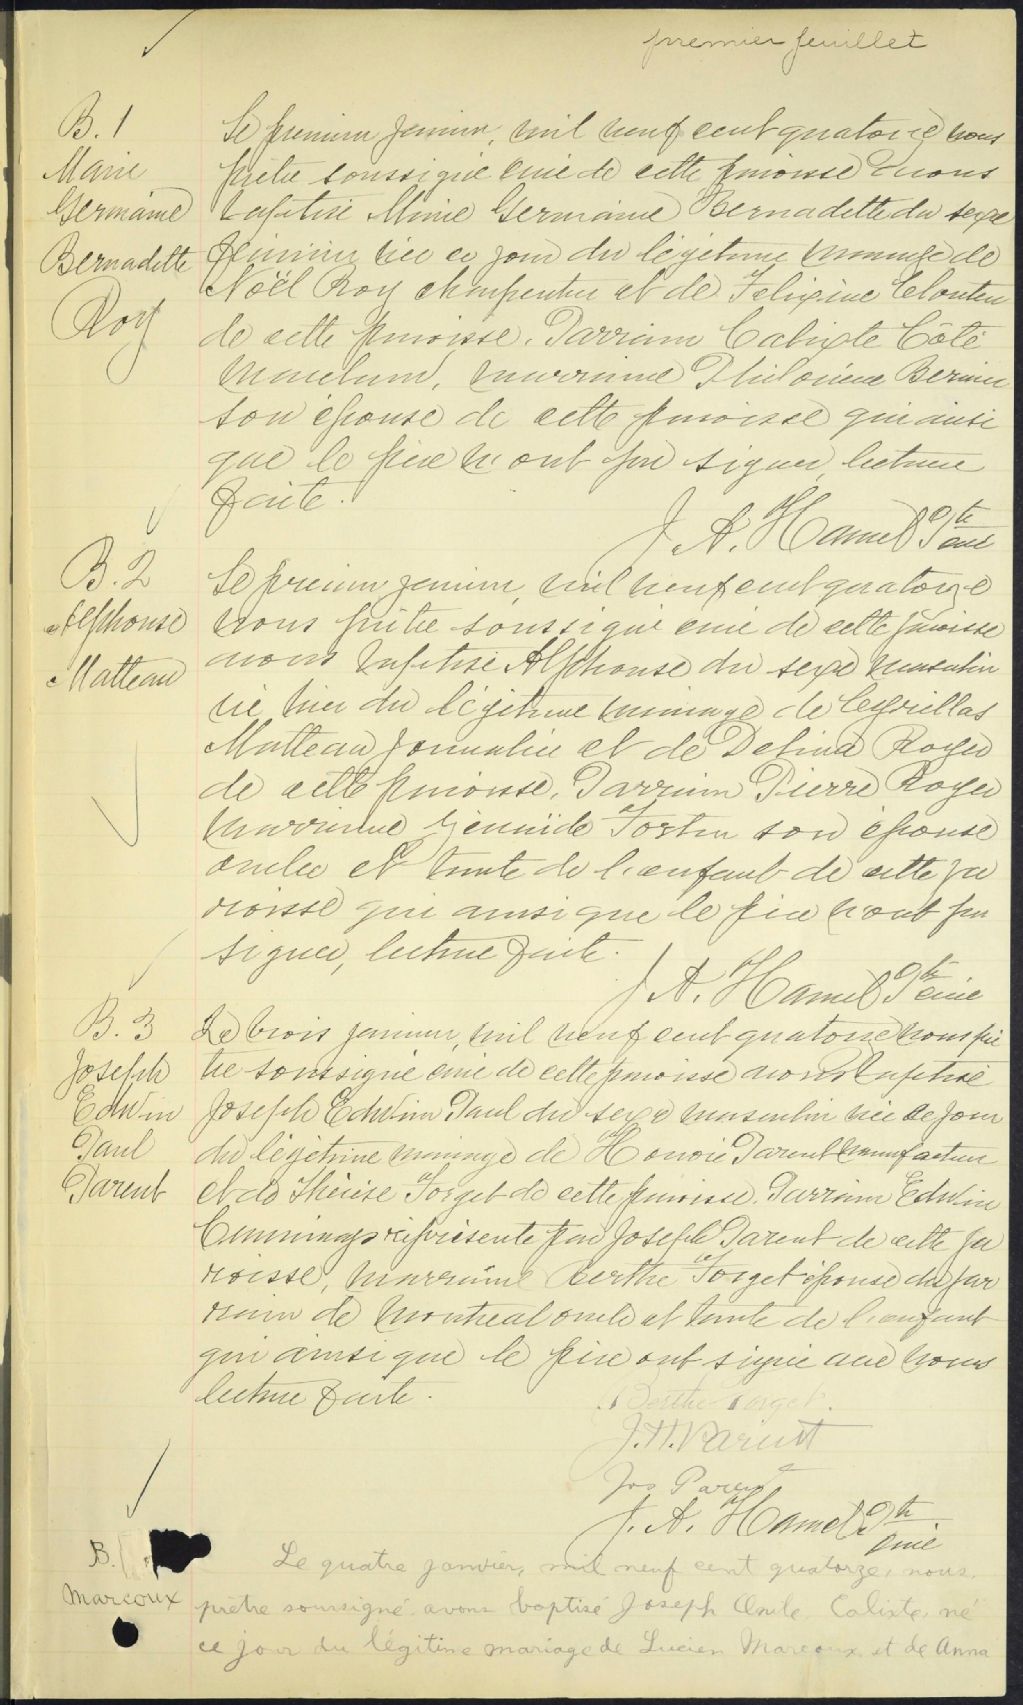 premier feuillet
B. 1
Marie
Germaine
Bernadette
Roy
Le premier janvier, mil neuf cent quatorze nous
prêtre soussigné curé de cette paroisse avons
baptisé Marie Germaine Bernadette du sexe
féminin née ce jour du légitime mariage de
Noël Roy charpentier et de Felixine Cloutier
de cette paroisse. Parrain Calixte Côté
marchand, marraine Philomène Bernier
son épouse de cette paroisse qui ainsi
que le père n'ont pu signer, lecture
faite.
J. A. Hamel Ptre
curé
B. 2
Alphonse
Matteau
Le premier janvier, mil neuf cent quatorze
nous prêtre soussigné curé de cette paroisse
avons baptisé Alphonse du sexe masculin
né hier du légitime mariage de Cyrillas
Matteau journalier et de Delina Roger
de cette paroisse. Parrain Pierre Roger
marraine Fortin son épouse
oncle et tante de l'enfant de cette pa
roisse qui ainsi que le père n'ont pu
signer, lecture faite.
J. A. Hamel Ptre
curé
B. 3
Joseph
Edwin
Paul
Parent
Le trois janvier, mil neuf cent quatorze nous prê
tre soussigné curé de cette paroisse avons baptisé
Joseph Edwin Paul du sexe masculin née ce jour
du légitime mariage de Honoré Parent manufacturier
et de Thérèse Forget de cette paroisse. Parrain Edwin
Cummings représenté par Joseph Parent de cette pa
roisse, marraine Berthe Forget épouse du par
rain de Montreal oncle et tante de l'enfant
qui ainsi que le père ont signé avec nous
lecture faite.
Berthe Forget.
J. H. Parent
Jos Parent
J. A. Hamel Ptre
curé
B.
Marcoux
Le quatre janvier, mil neuf cent quatorze, nous,
prêtre soussigné avons baptisé Joseph Emile Calixte, né
ce jour du légitime mariage de Lucien Marcoux et de Anna